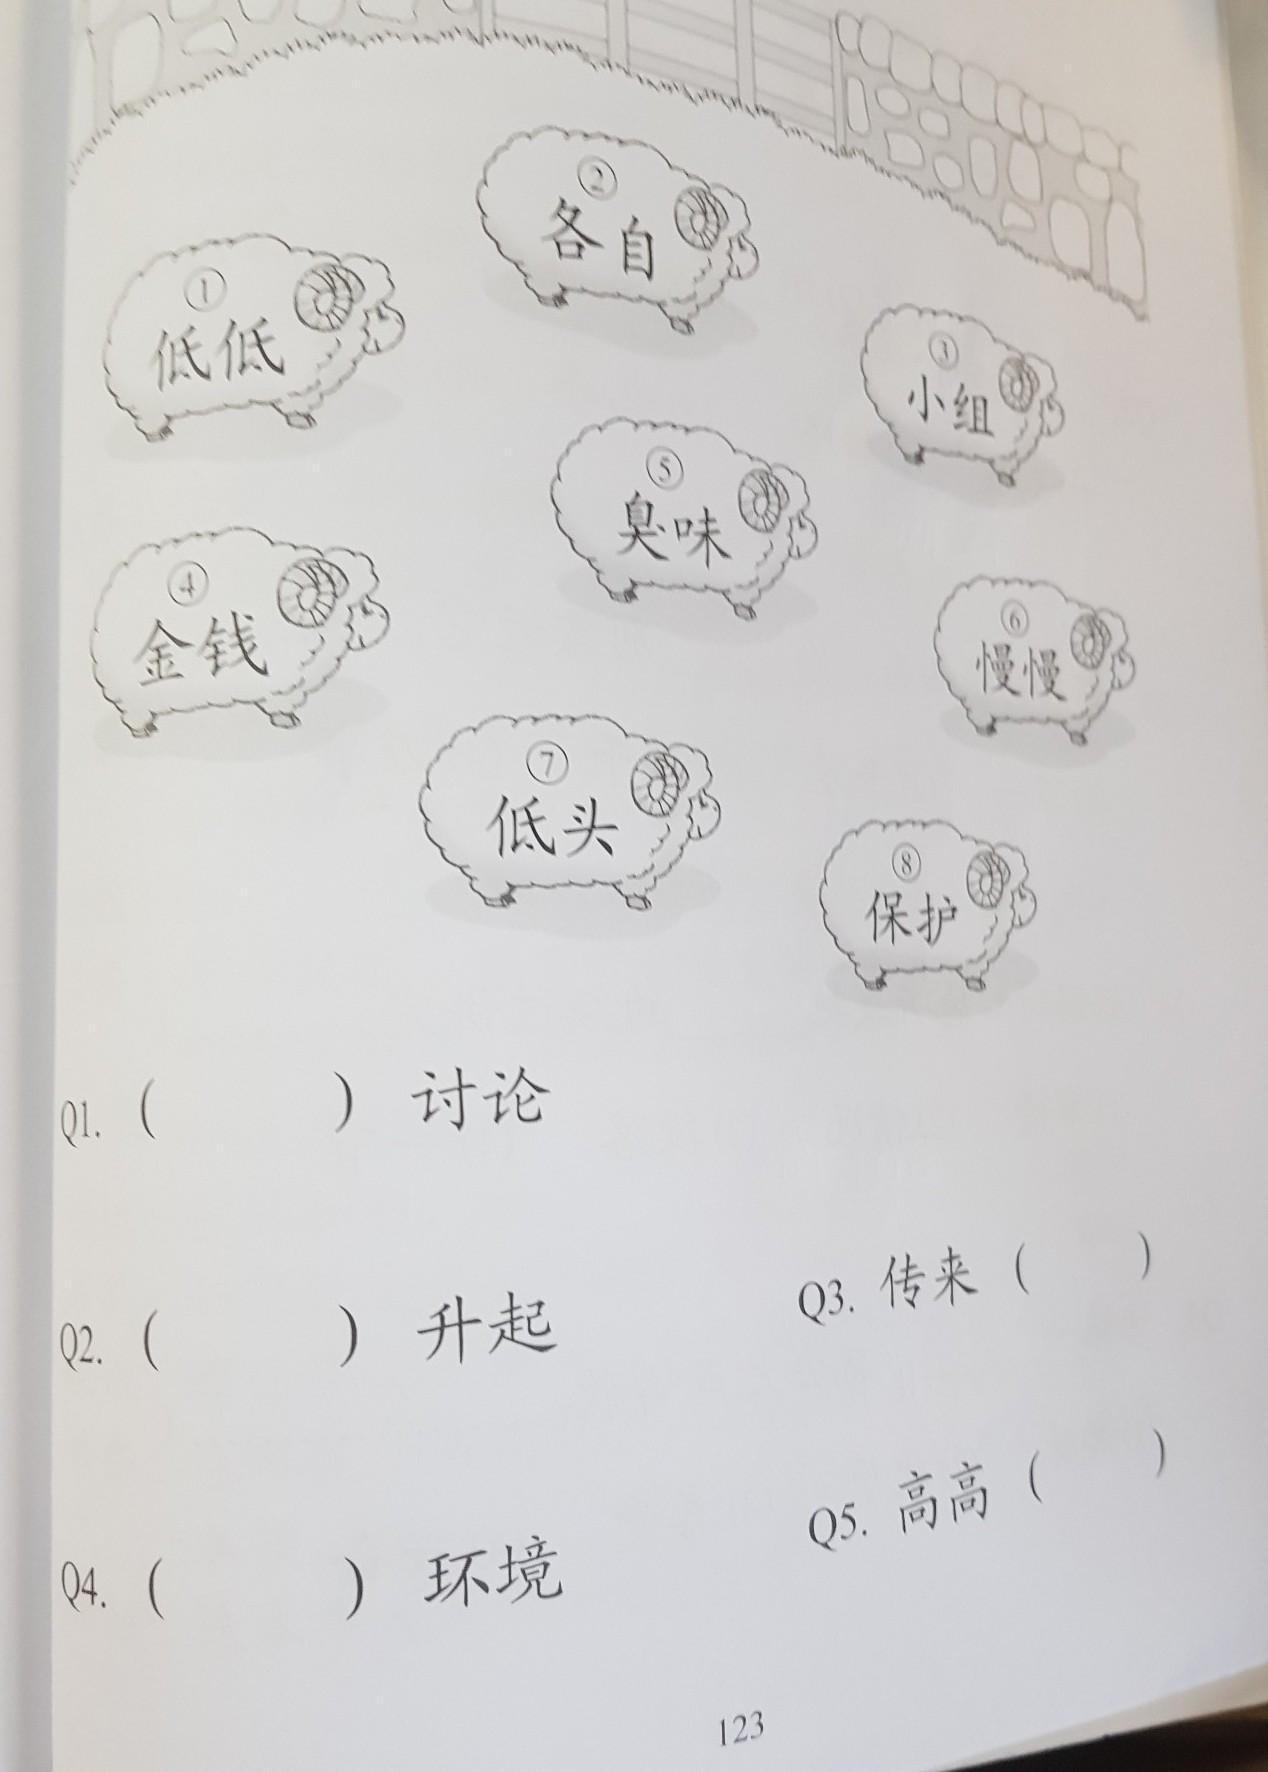 ① 低低
② 各自
③ 小组
④ 金钱
⑤ 臭味
⑥ 慢慢
⑦ 低头
⑧ 保护
Q1. (          ) 讨论
Q2. (          ) 升起
Q3. 传来 (          )
Q4. (          ) 环境
Q5. 高高 (          )
123